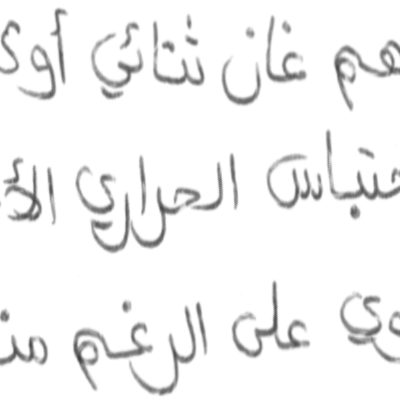 هم غاز ثنائي أو
حتباس الحراري الأ
وي على الرغم من